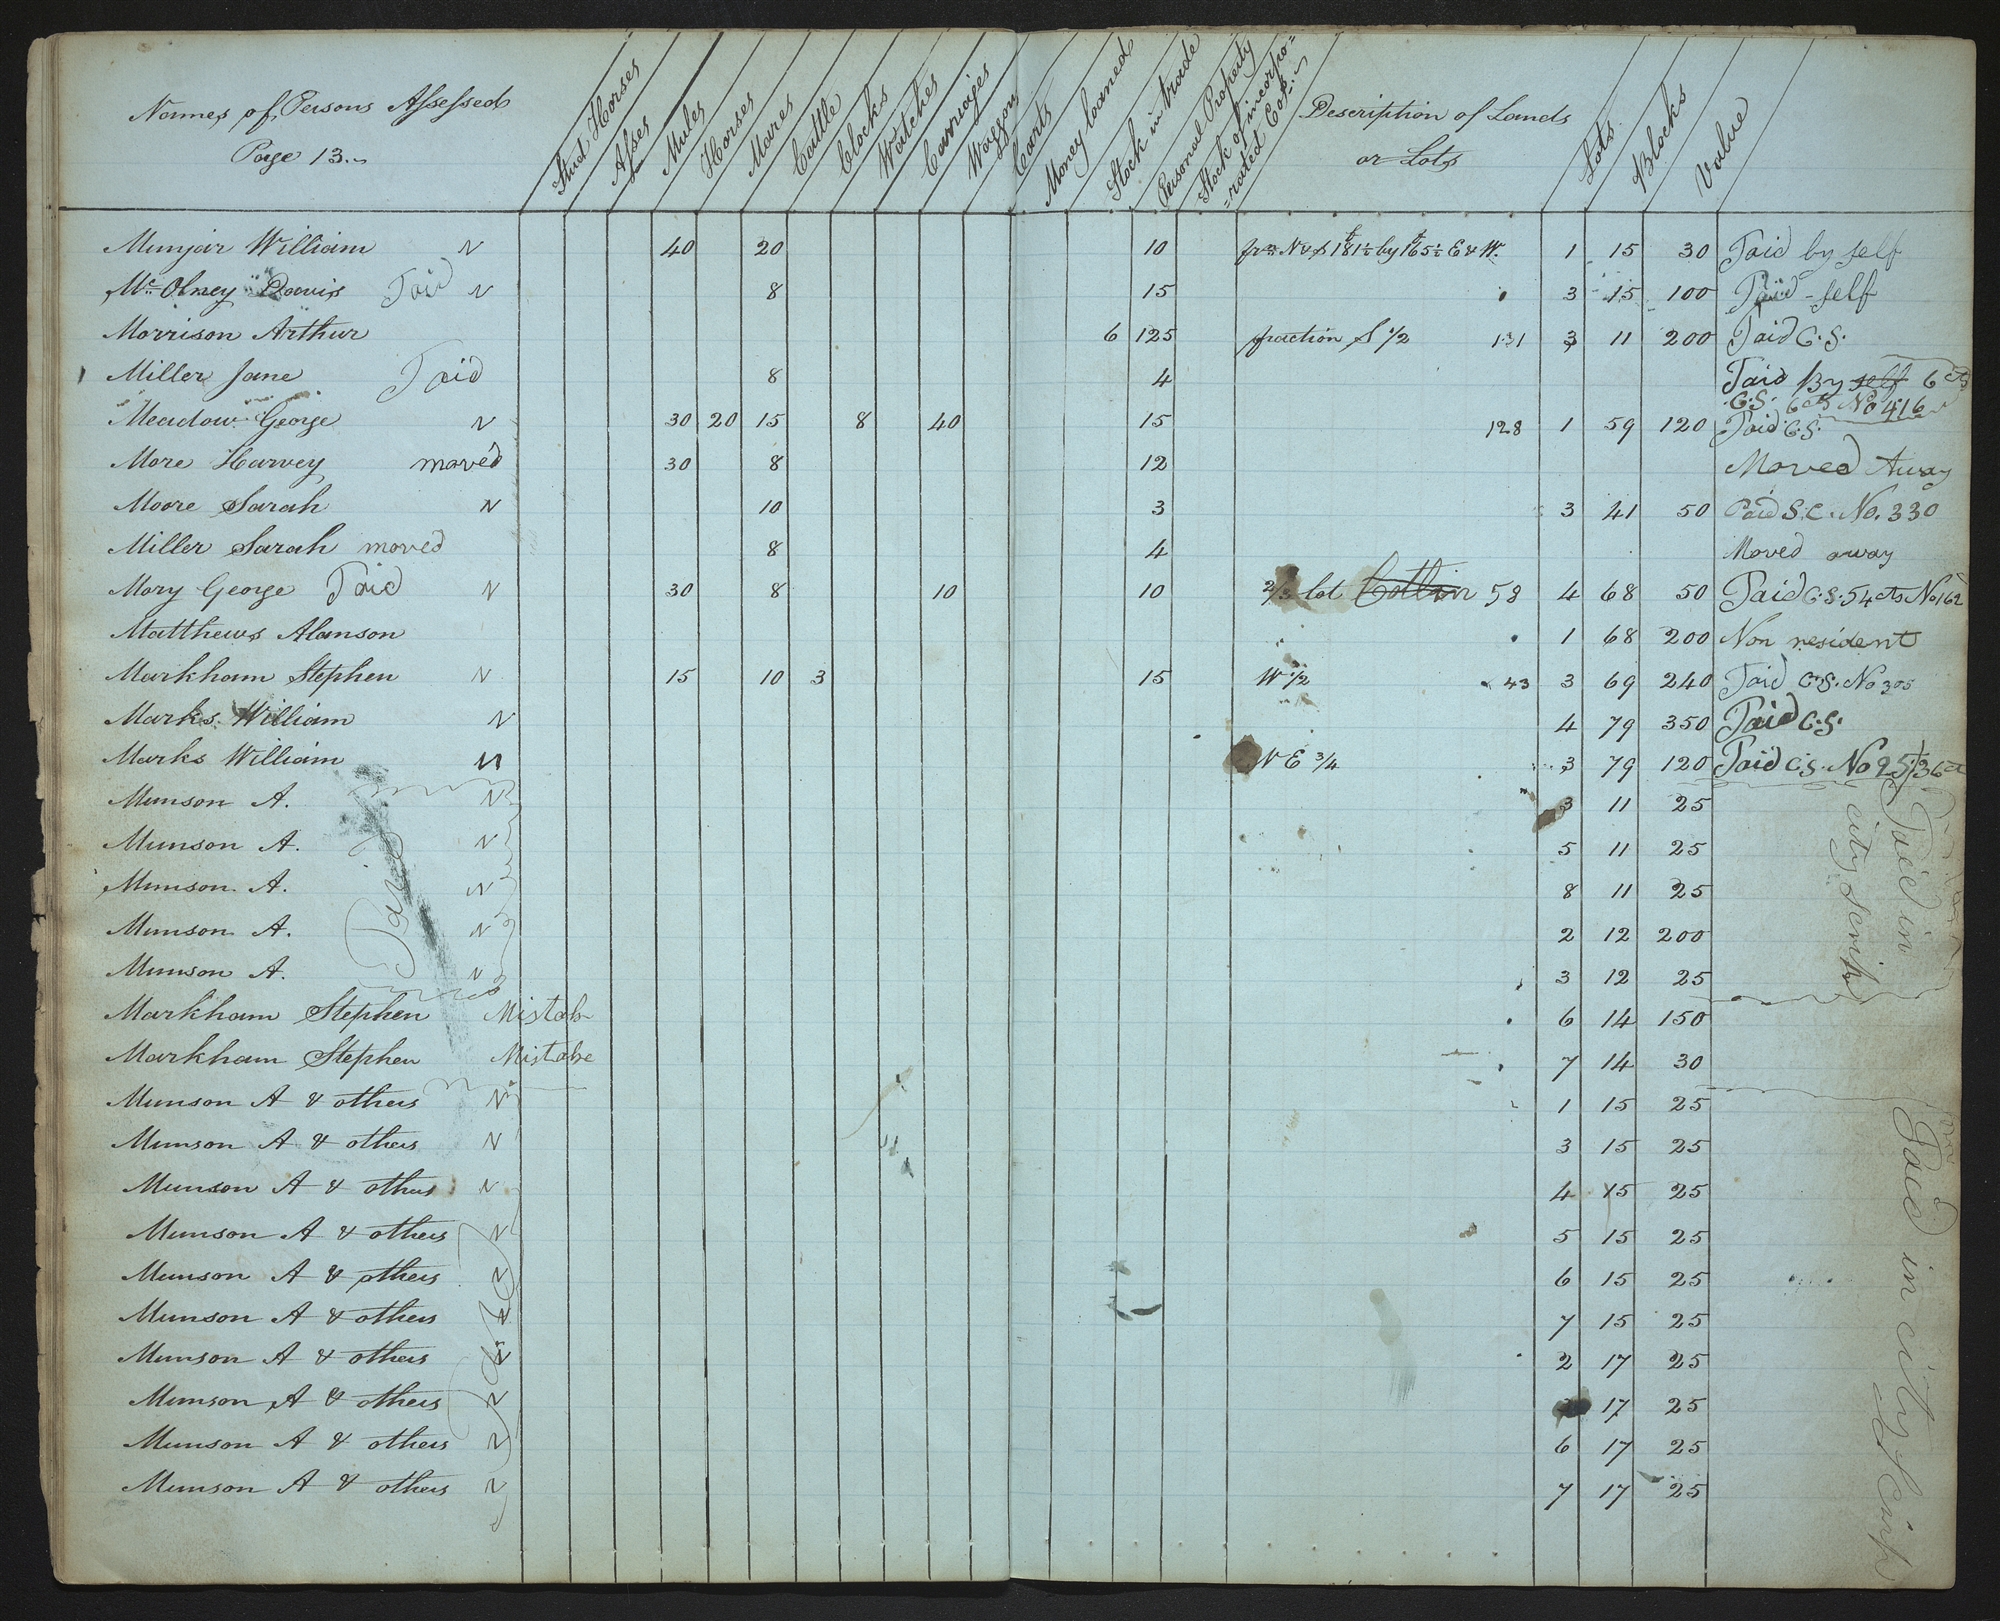 Names of Persons Assessed
Page 13
Stud Horses
Asses
Mules
Horses
Mares
Cattle
Clocks
Watches
Carriages
Waggons
Carts
Money loaned
Stock in trade
Personal Property
Stock of incorpo=
=rated Cos.
Description of Lands
or Lots
Lots
Blocks
Value
Munjar William N 40 20 10 N & S 181½ by 165½ E & W. 1 15 30 Paid by self
Mc Olney Davis Paid N 8 15 3 15 100 Paid - self
Morrison Arthur 6 125 fraction S 1/2 131 3 11 200 Paid C.S.
Miller Jane Paid 8 4 Paid By self 6 cts
C.S. 6 cts No 416
Meadow George N 30 20 15 8 40 15 128 1 59 120 Paid C.S.
More Harvey moved 30 8 12 Moved Away
Moore Sarah N 10 3 3 41 50 Paid S.C. No. 330
Miller Sarah moved 8 4 Moved away
Mory George Paid N 30 8 10 10 2/3 lot 58 4 68 50 Paid C.S. 54 cts No 162
Matthews Alanson 1 68 200 Non resident
Markham Stephen N 15 10 3 15 W 1/2 43 3 69 240 Paid C.S. No 305
Marks William N 4 79 350 Paid C.S.
Marks William N N E 3/4 3 79 120 Paid C.S. No 95
Munson A. N 3 11 25
Munson A. N 5 11 25
Munson A. N 8 11 25
Munson A. N 2 12 200
Munson A. N 3 12 25
Paid
Paid in
city scrip
Markham Stephen Mistake 6 14 150
Markham Stephen Mistake 7 14 30
Munson A & others N 1 15 25
Munson A & others N 3 15 25
Munson A & others N 4 15 25
Munson A & others N 5 15 25
Munson A & others N 6 15 25
Munson A & others N 7 15 25
Munson A & others N 2 17 25
Munson A & others N 17 25
Munson A & others N 6 17 25
Munson A & others N 7 17 25
Paid
Paid in city Scrip